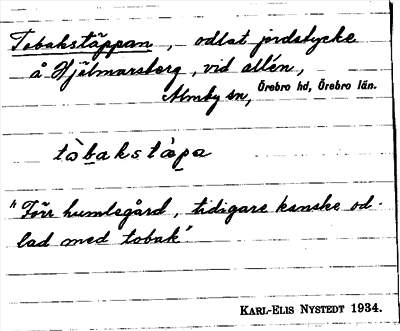 Tobakstäppan, odlat jordstycke
å Hjälmarsberg, vid allén,
Almby sn, Örebro hd, Örebro län.
tòbakstàpa
"Förr humlegård, tidigare kanske od-
lad med tobak".
KARL-ELIS NYSTEDT 1934.